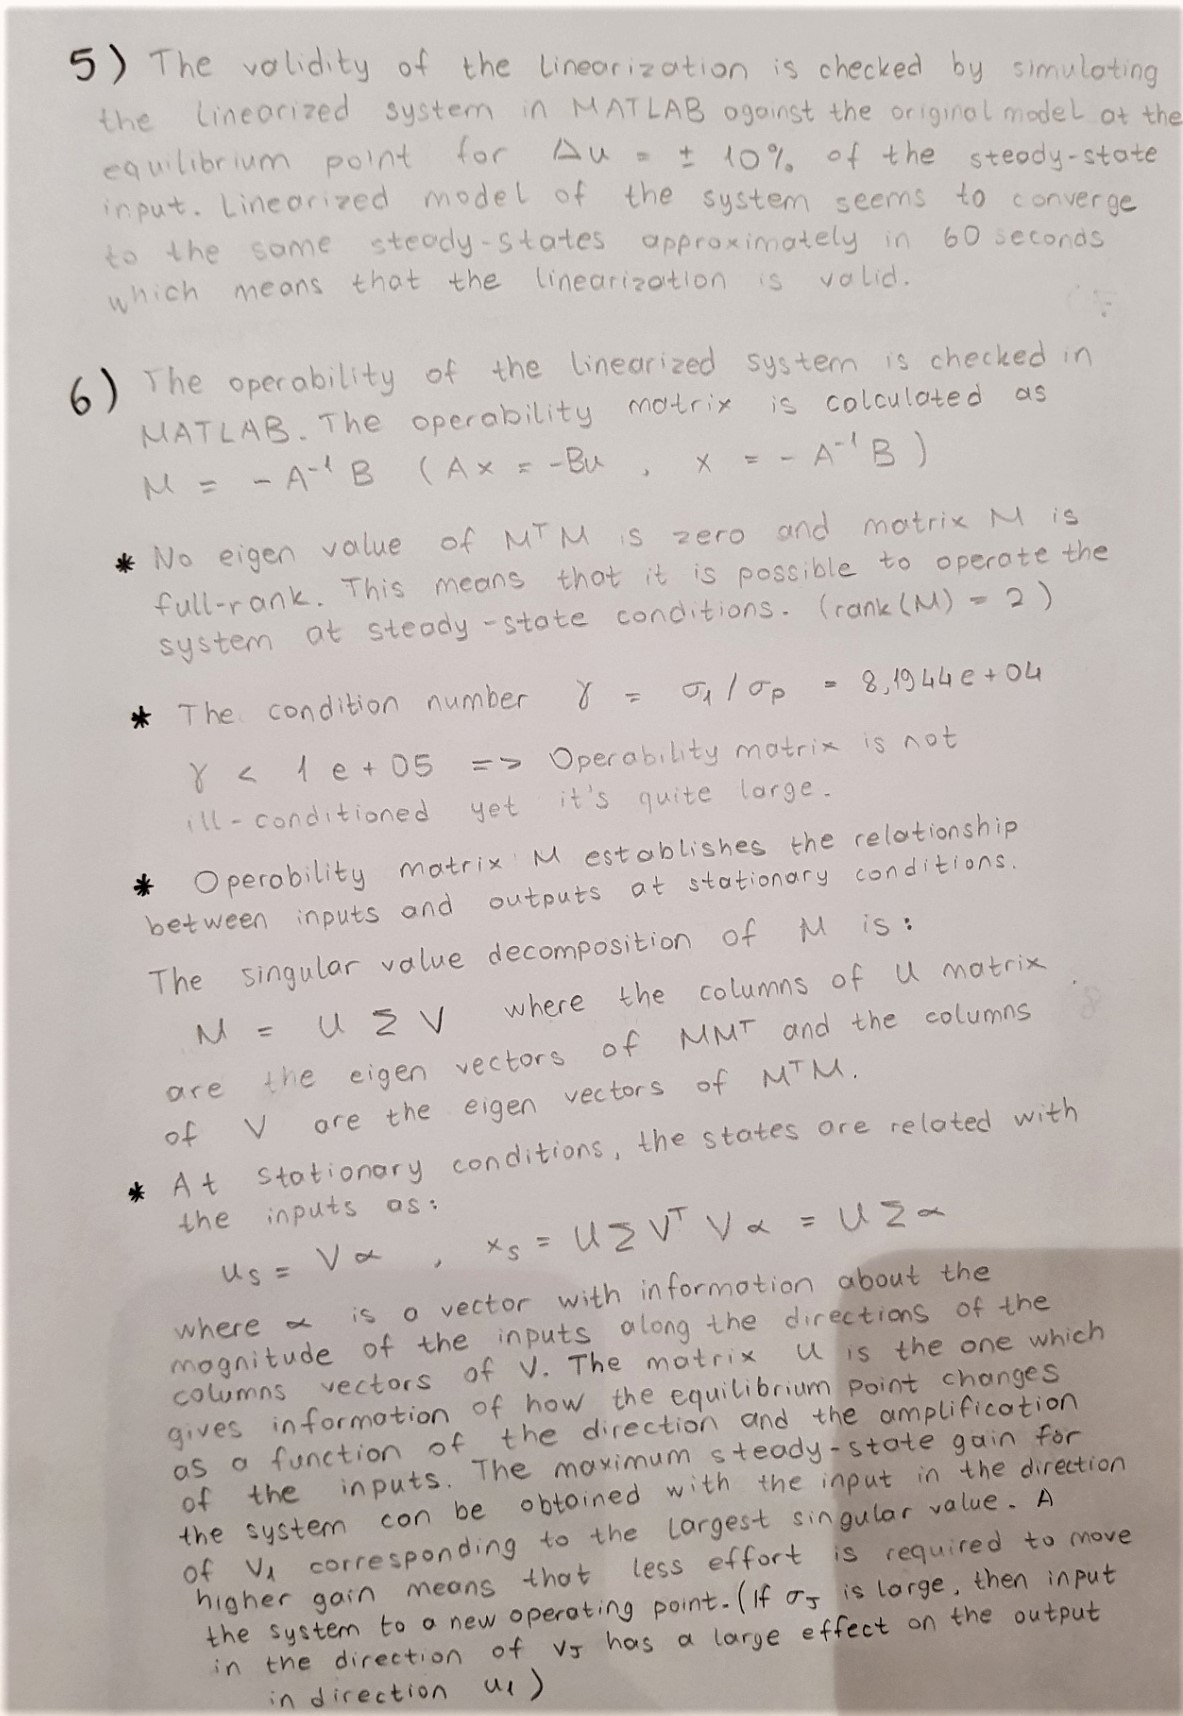 5) The validity of the linearization is checked by simulating
the linearized system in MATLAB against the original model at the
equilibrium point for Δu = ± 10% of the steady-state
input. Linearized model of the system seems to converge
to the same steady-states approximately in 60 seconds
which means that the linearization is valid.
6) The operability of the linearized system is checked in
MATLAB. The operability matrix is calculated as
M = - A⁻¹ B ( Ax = -Bu , x = - A⁻¹ B )
* No eigen value of MᵀM is zero and matrix M is
full-rank. This means that it is possible to operate the
system at steady-state conditions. (rank(M) = 2)
* The condition number γ = σ₁ / σₚ = 8,1944e+04
γ < 1e+05 => Operability matrix is not
ill-conditioned yet it's quite large.
* Operability matrix M establishes the relationship
between inputs and outputs at stationary conditions.
The singular value decomposition of M is:
M = U Σ V where the columns of U matrix
are the eigen vectors of MMᵀ and the columns
of V are the eigen vectors of MᵀM.
* At stationary conditions, the states are related with
the inputs as:
us = Vα , xs = UΣVᵀVα = UΣα
where α is a vector with information about the
magnitude of the inputs along the directions of the
columns vectors of V. The matrix U is the one which
gives information of how the equilibrium point changes
as a function of the direction and the amplification
of the inputs. The maximum steady-state gain for
the system can be obtained with the input in the direction
of V₁ corresponding to the largest singular value. A
higher gain means that less effort is required to move
the system to a new operating point. (If σJ is large, then input
in the direction of vJ has a large effect on the output
in direction u₁)